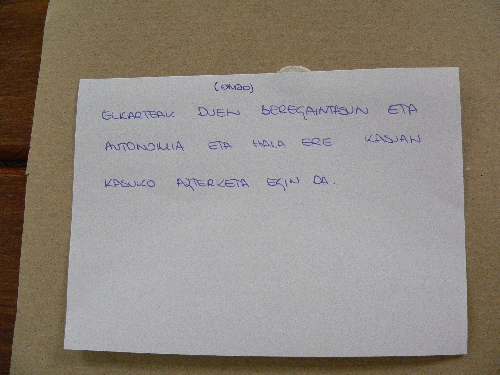 (ONDO)
ELKARTEAK DUEN BEREGAINTASUN ETA
AUTONOMIA ETA HALA ERE KASUAN
KASUKO AZTERKETA EGIN DA.